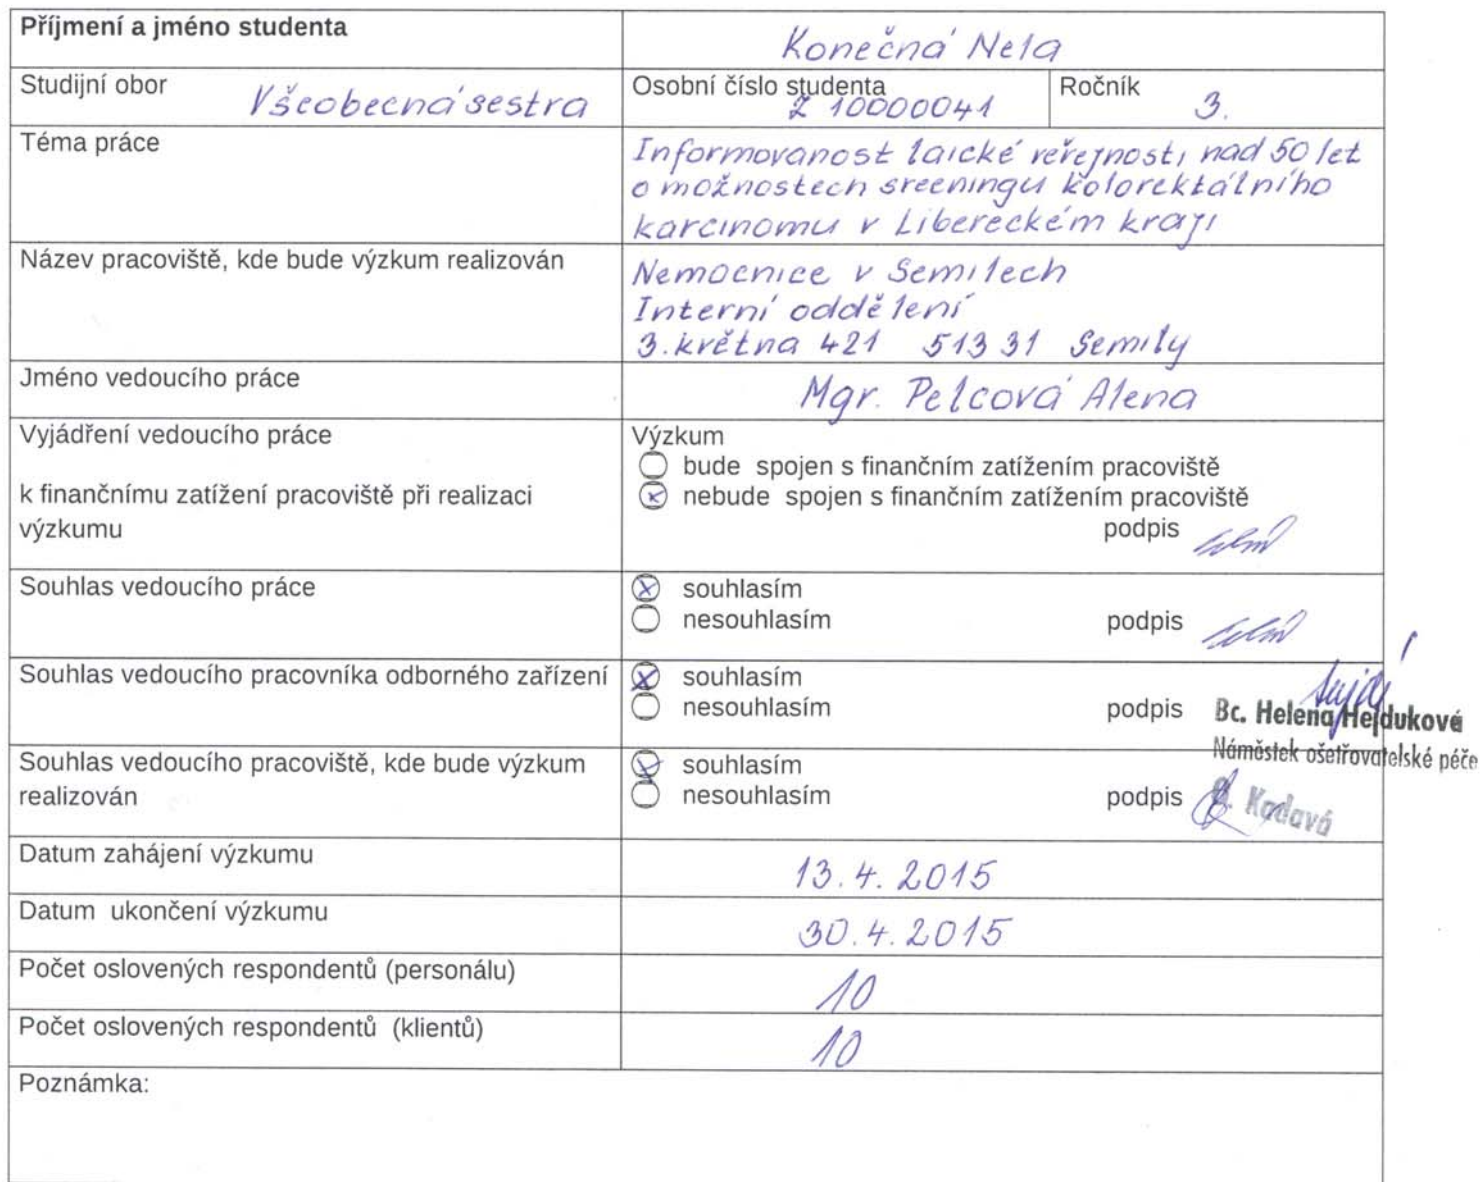 Příjmení a jméno studenta
Konečná Nela
Studijní obor
Všeobecná sestra
Osobní číslo studenta
Z 10000041
Ročník
3.
Téma práce
Informovanost laické veřejnosti nad 50 let
o možnostech sreeningu kolorektálního
karcinomu v Libereckém kraji
Název pracoviště, kde bude výzkum realizován
Nemocnice v Semilech
Interní oddělení
3. května 421 513 31 Semily
Jméno vedoucího práce
Mgr. Pelcová Alena
Vyjádření vedoucího práce
k finančnímu zatížení pracoviště při realizaci
výzkumu
Výzkum
bude spojen s finančním zatížením pracoviště
nebude spojen s finančním zatížením pracoviště
podpis
Souhlas vedoucího práce
souhlasím
nesouhlasím podpis
Souhlas vedoucího pracovníka odborného zařízení
souhlasím
nesouhlasím podpis
Bc. Helena Hejduková
Náměstek ošetřovatelské péče
Souhlas vedoucího pracoviště, kde bude výzkum
realizován
souhlasím
nesouhlasím podpis
Kadavá
Datum zahájení výzkumu
13.4.2015
Datum ukončení výzkumu
30.4.2015
Počet oslovených respondentů (personálu)
10
Počet oslovených respondentů (klientů)
10
Poznámka: